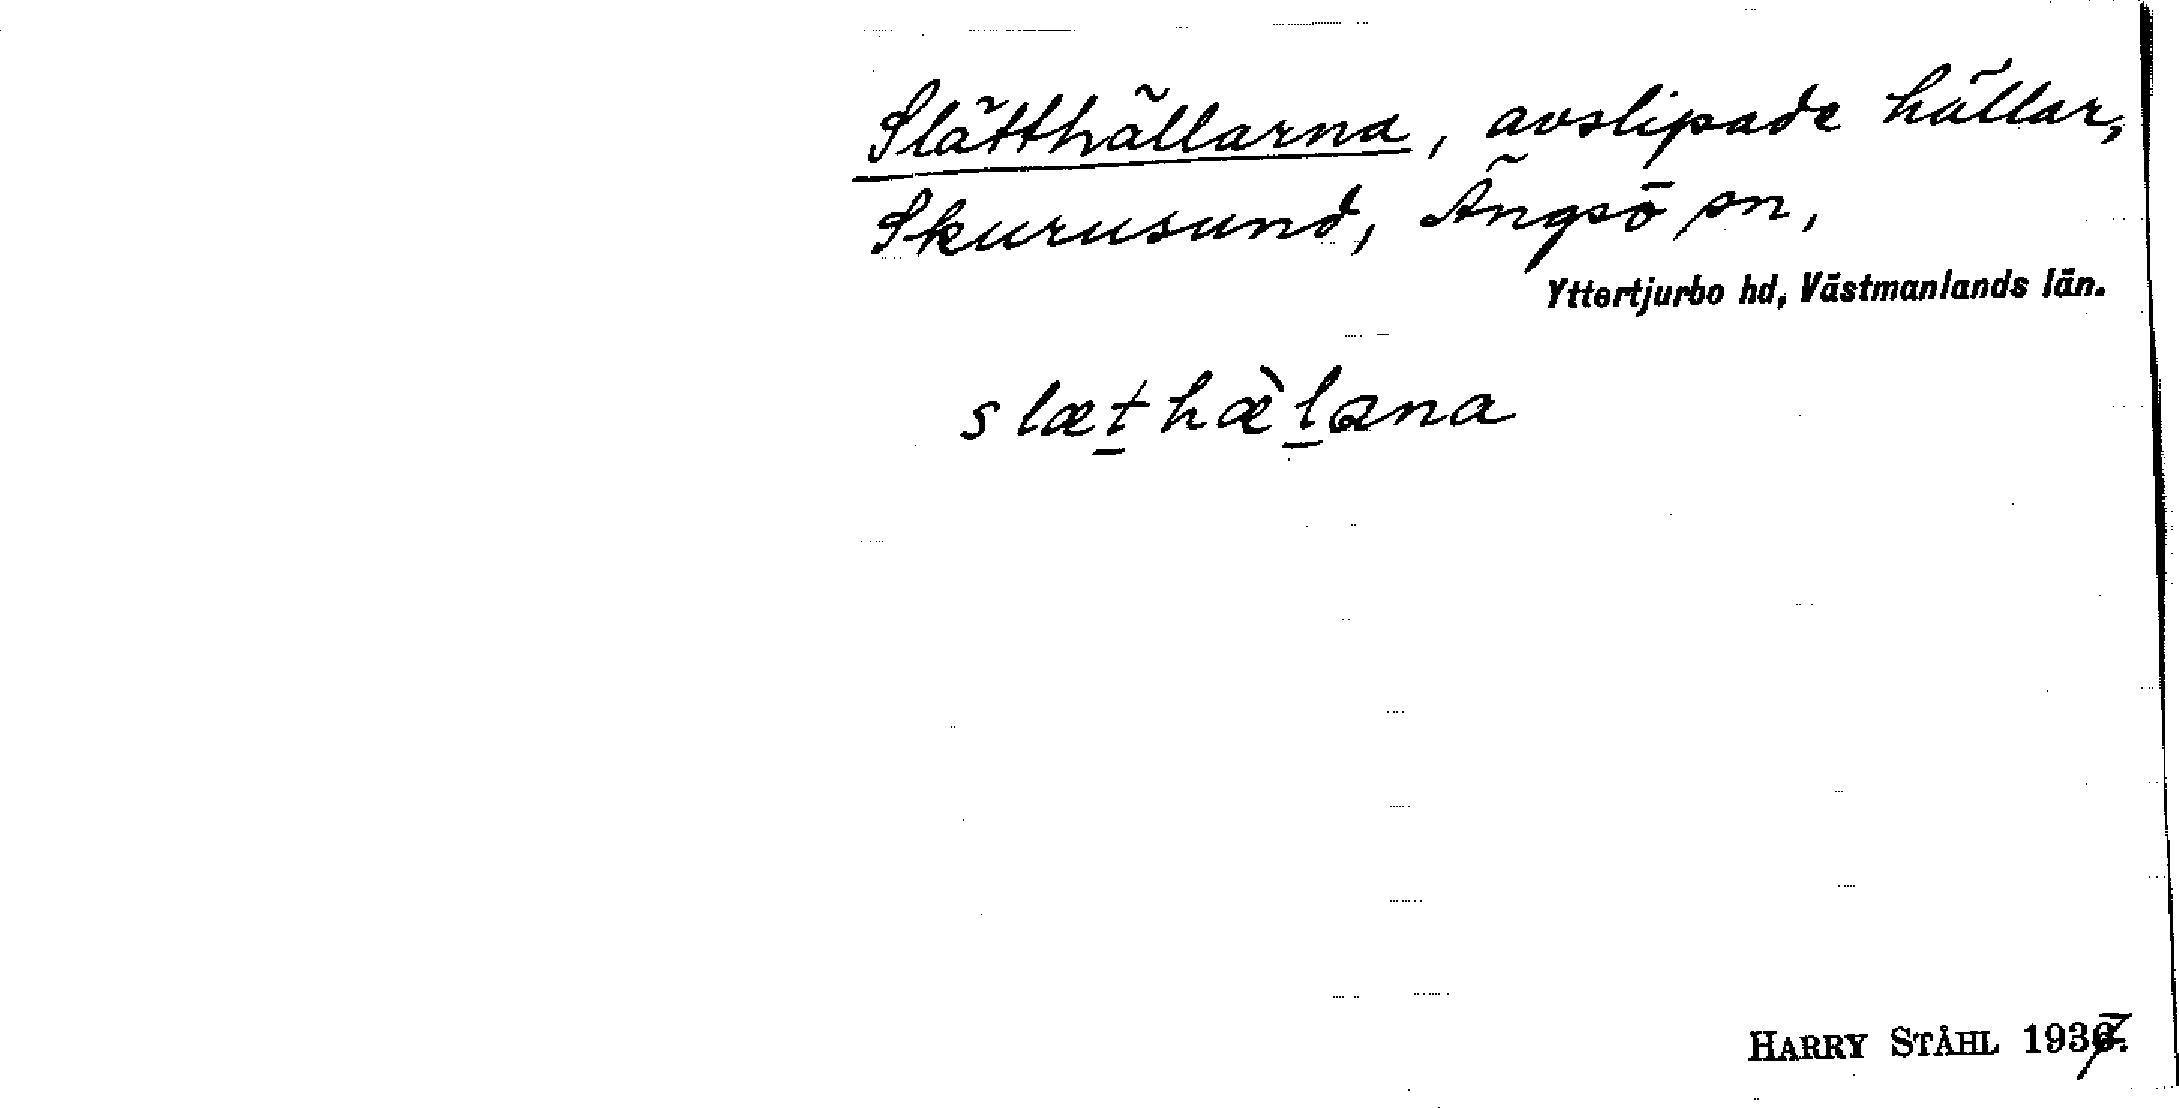 Slätthällarna, avslipade hällar,
Skurusund, Ängsö sn,
Yttertjurbo hd, Västmanlands län.
slæt̲hæ̀l̲ana
HARRY STÅHL 1937.